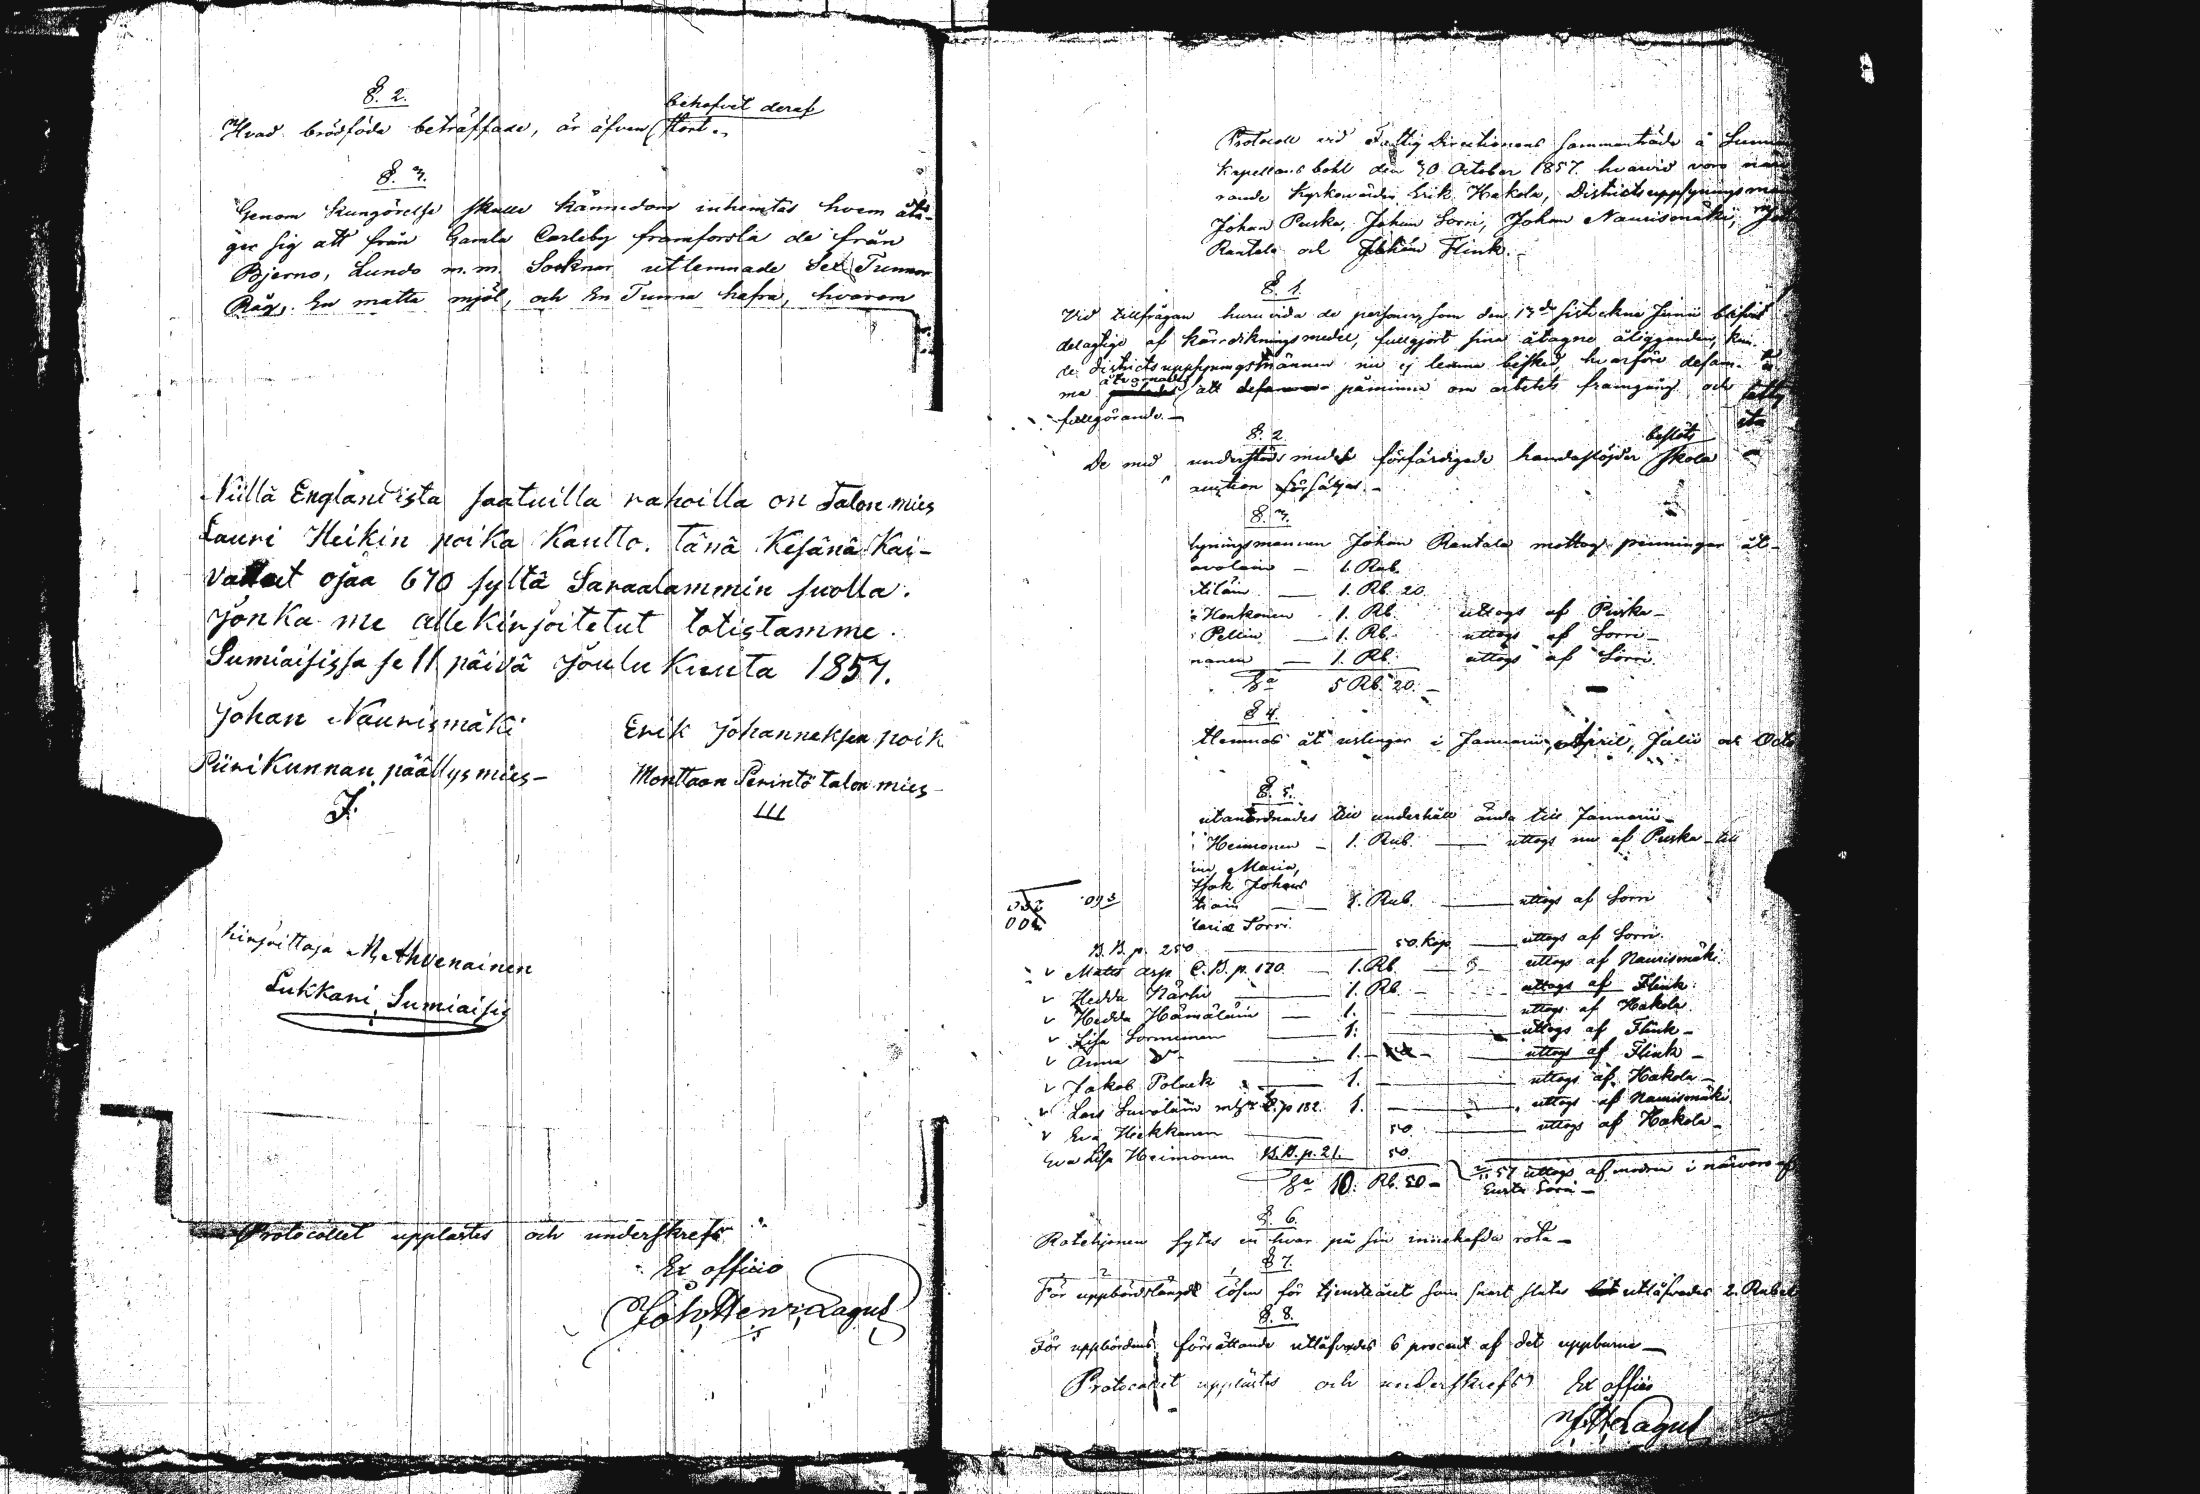 §. 2.
behofvet deraf
Hvad brödföda beträffade, är äfven stort.
§. 3.
Genom kungörelse skulle kännedom inhemtas hvem åta-
ger sig att från Gamla Carleby framforsla de från
Bjerno, Lundo m. m. Socknar utlemnade Sex Tunnor
Råg, En matta mjöl, och En Tunna hafra, hvarom
Niillä Englandista saatuilla rahoilla on Talon mies
Lauri Heikin poika Kautto. Tänä Kesänä Kai-
vattut ojaa 670 syltä Saraalammin suolla.
Jonka me allekirjoitetut totistamme.
Sumiaisissa se 11 päivä Joulu Kuuta 1857.
Johan Naurismäki
Piiri Kunnan päällysmies -
Erik Johanneksen poik
Monttaan Perintö talon mies -
kirjoittaja M. Ahvenainen
Lukkari Sumiaisis
Protocollet upplästes och underskrefs
Ex officio
Joh. Henr. Lagus
Protocoll vid Fattig Directionens sammanträde å Sumia
Kapellans bohl den 30 October 1857. hvarvid voro när
rande Kyrkovärden Erik Hakola, Districtsuppsyningsmän
Johan Puska, Johan Sorri, Johan Naurismäki,
Rantala och Johan Flink.
§. 1.
Vid tillfrågan huruvida de personer, som den 13de sistvekne Junii blifvit
delagtige af kärrdikningsmedel, fullgjort sina åtagne åligganden, kun-
de districtsuppsyningsmännen nu ej lemna besked, hvarföre desam-
ma att påminna om arbetets framgång och
fullgörande. -
§. 2.
beslöts
De med understöds medel förfärdigade handaslöjder skola
auction försäljas. -
§. 3.
syningsmannen Johan Rantala mottog penningar åt -
avolain - 1. Rub.
itiläin - 1. Rb. 20.
Honkonen - 1. Rb. uttogs af Puska -
Pellin - 1. Rb. uttogs af Sorri -
nanen - 1. Rb. uttogs af Sorri.
Sa 5 Rb. 20. -
§ 4.
tlemnas åt uslingar i Januarii, April, Julii och Octo
§. 5.
utanordnades till underhåll ända till Januarii -
Heimonen - 1. Rub. - uttogs nu af Puska - till
Maria,
Isak Johans
1. Rub. - uttogs af Sorri
Sorri.
B. B. p. 250 - 50. Kop. - uttogs af Sorri.
v Matts Asp C. B. p. 170 - 1. Rb. - uttogs af Naurismäki.
v Hedda Närhi - 1. Rb. - uttogs af Flink.
v Hedda Hämäläin - 1. - uttogs af Hakola.
v Lisa Sormunen - 1. - uttogs af Flink -
v Anna Do - 1. - uttogs af Flink -
v Jakob Polack - 1. - uttogs af Hakola -
v Lars p 182. 1. - uttogs af Naurismäki
v Eva Hakkanen 50 - uttogs af Hakola -
Eva Lisa Heimonen B. B. p. 21. 50
57 uttogs af modren i närvaro af
Sa 10. Rb. 50 -
§. 6.
Rotehjonen sytas en hvar på sin innehafda rota -
§ 7.
För uppbördslängds lösen för tjensteåret som snart slutas utläfvades 2. Rubel
§. 8.
För uppbördens förrättande utläfvades 6 procent af det uppburna -
Protocollet upplästes och underskrefs Ex officio
J. H. Lagus